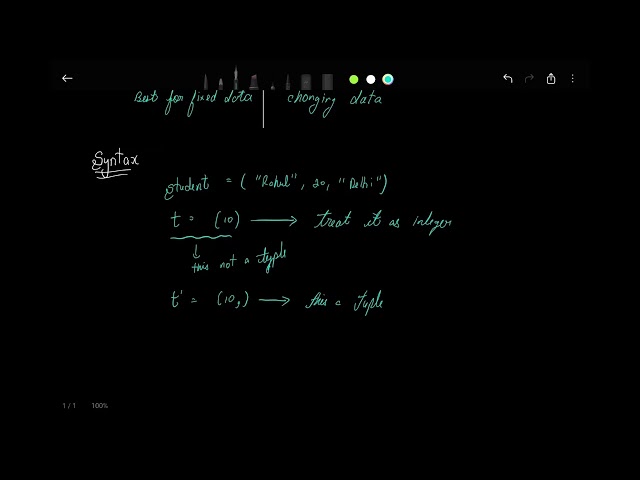 Best for fixed data changing data
Syntax
Student = ( "Rahul", 20, "Delhi")
t = (10) → treat it as integer
↓
this not a tuple
t' = (10,) → this a tuple
1 / 1 100%